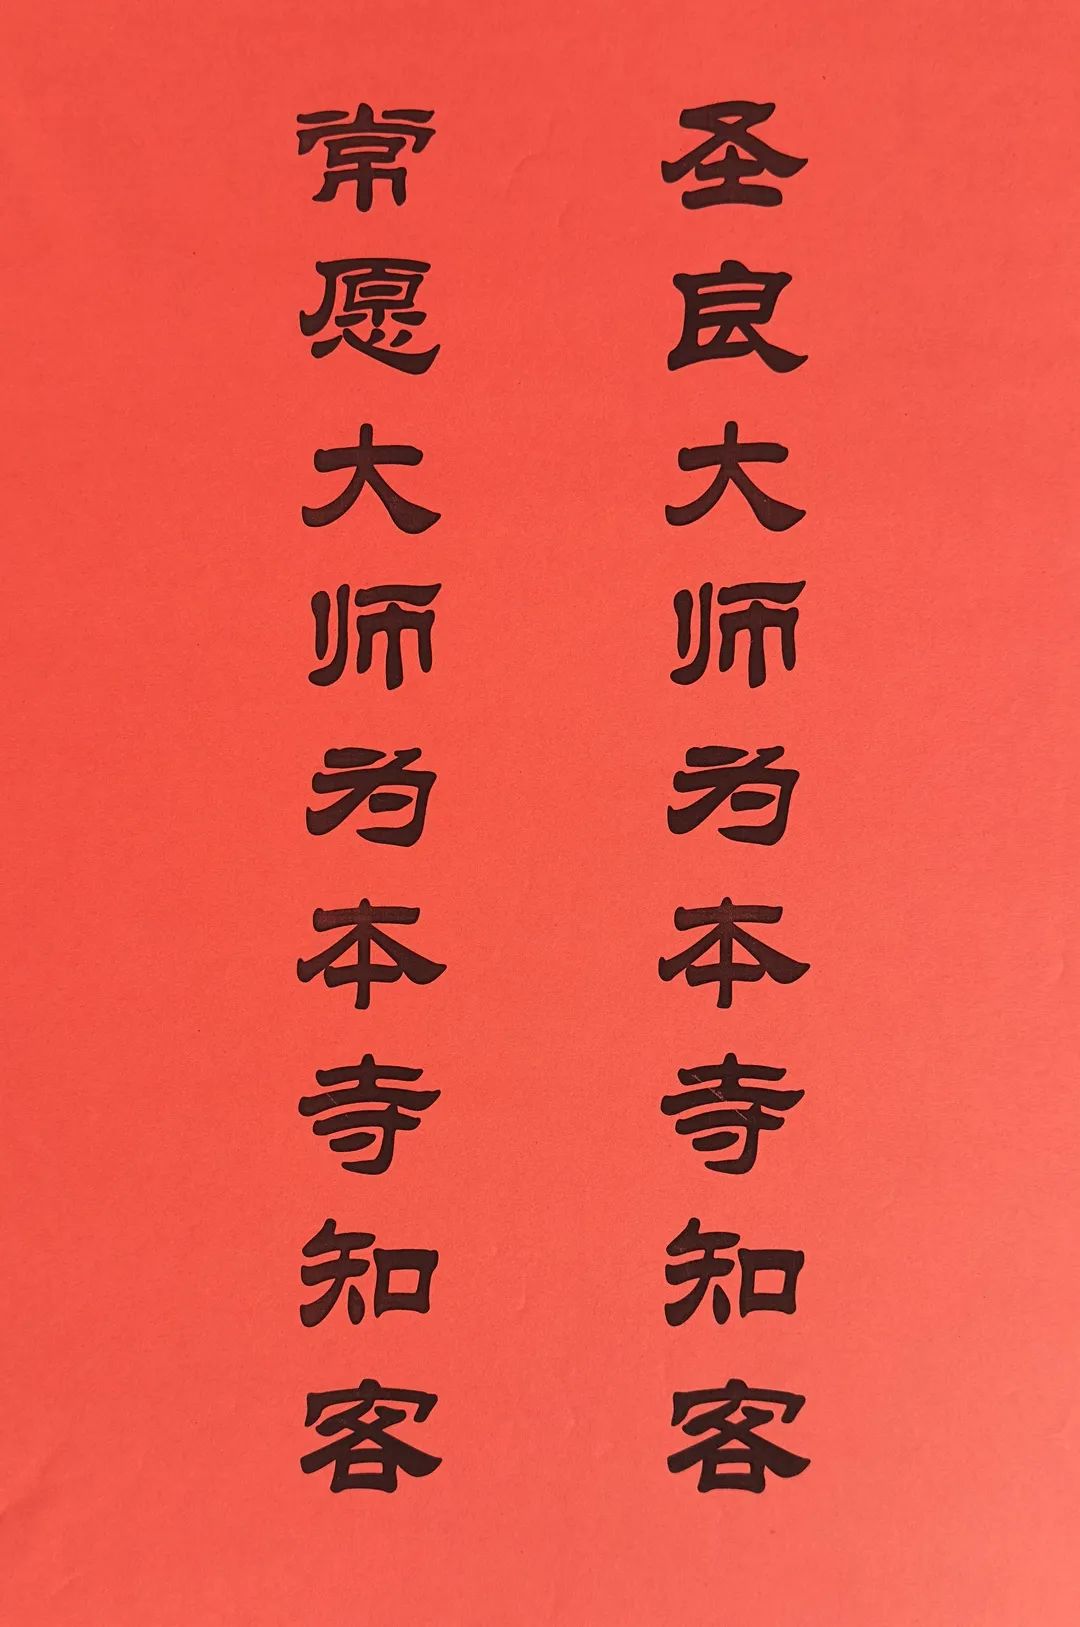 圣良大师为本寺知客
常愿大师为本寺知客